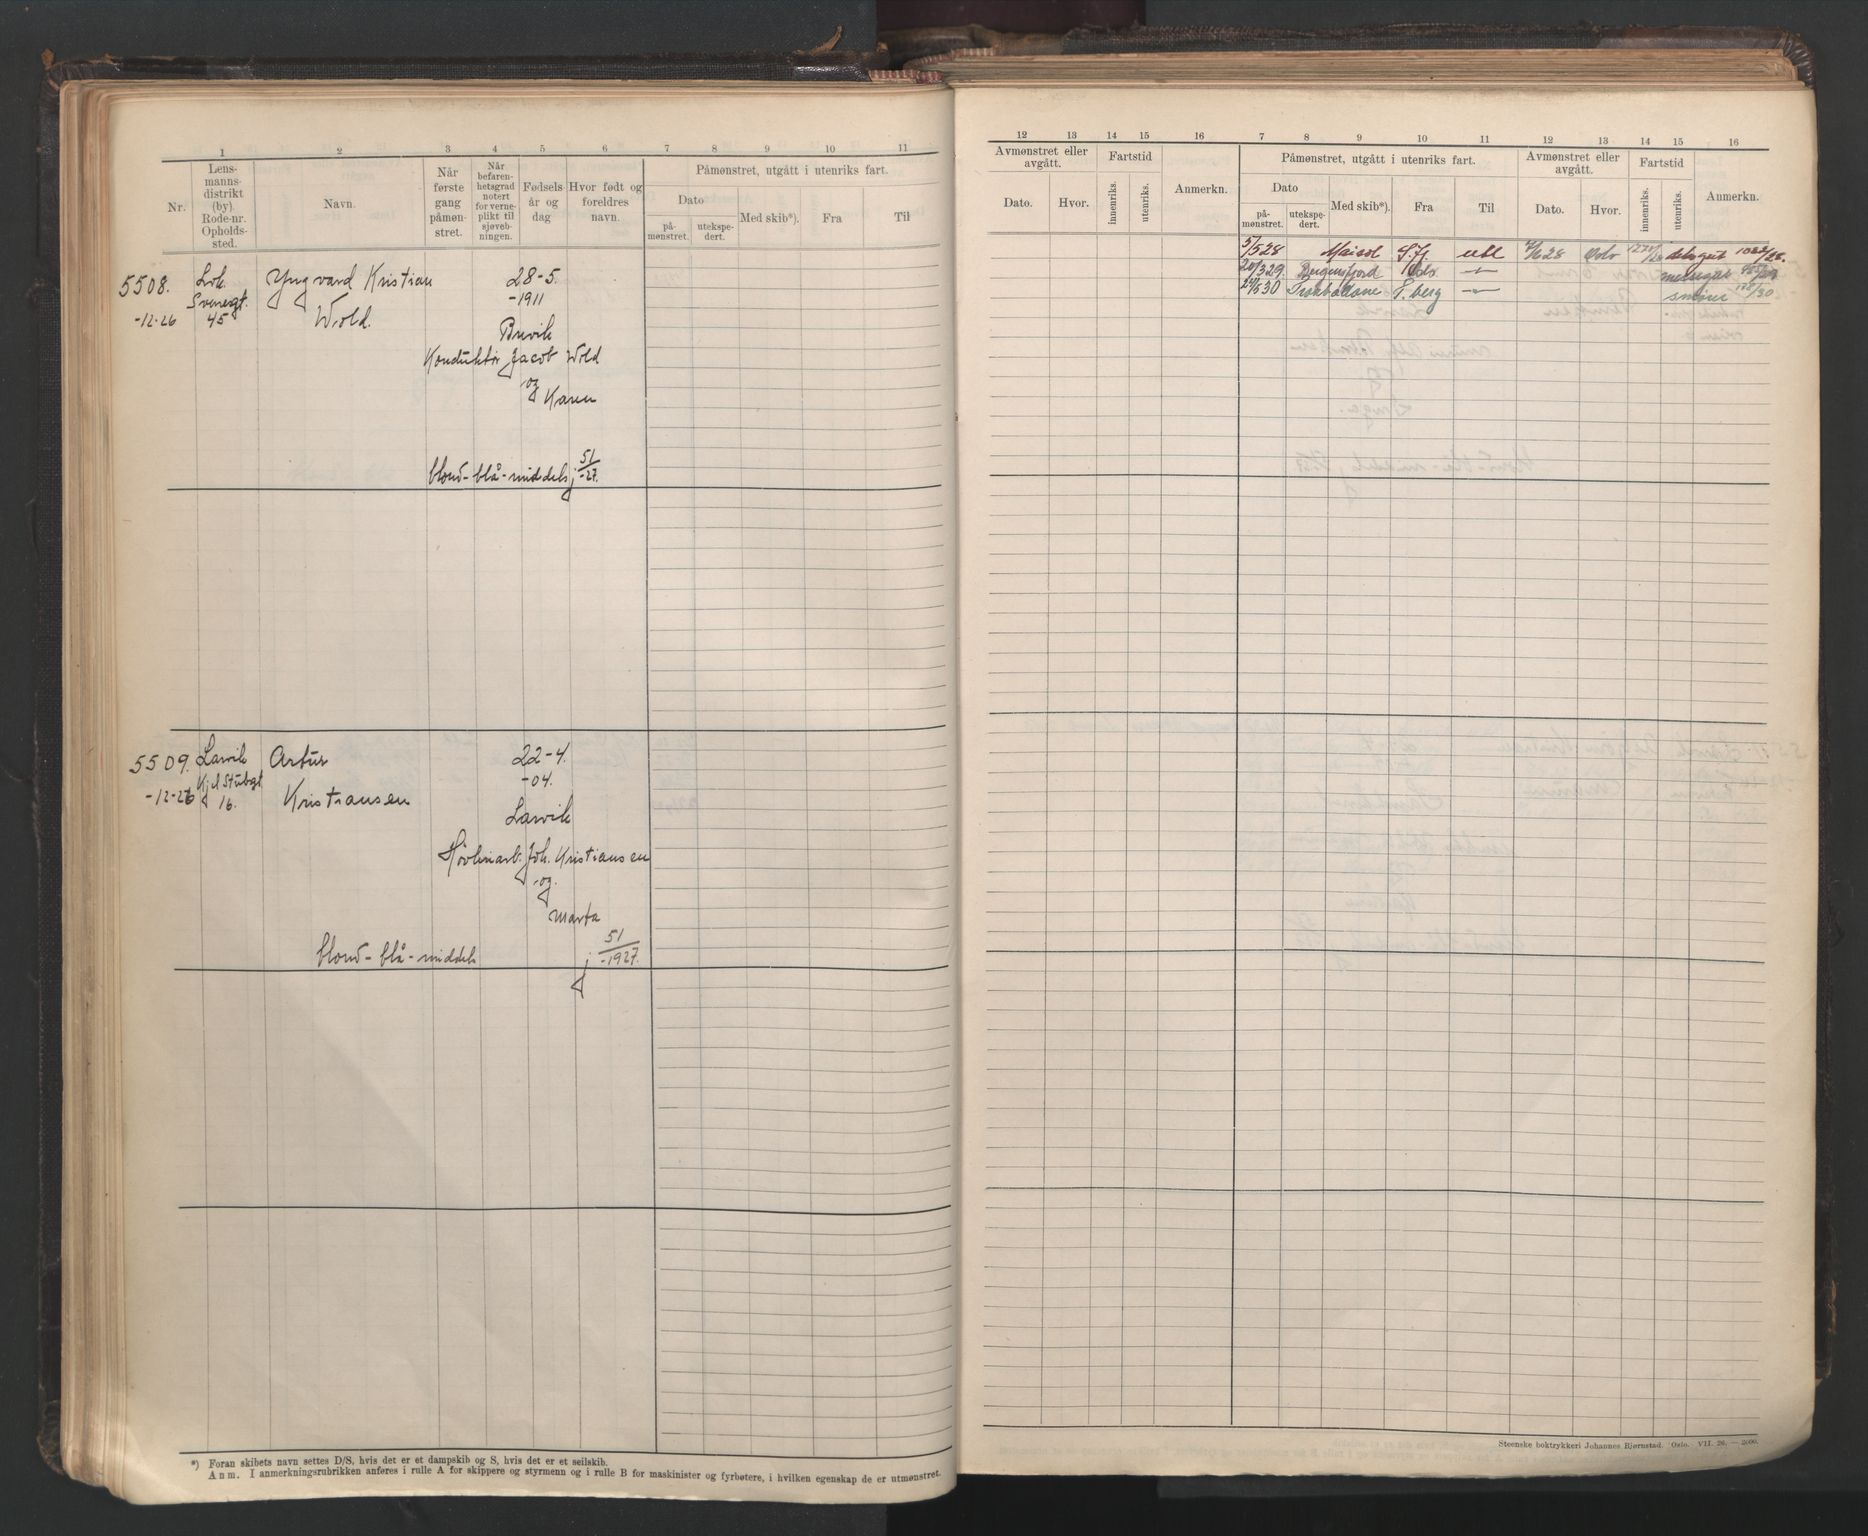 1 2 3 4 5 6 7 8 9 10 11
Nr. Lensmannsdistrikt (by). Rode-nr. Opholdssted. Navn. Når første gang påmønstret. Når befarenhetsgrad notert for verneplikt til sjøvebningen. Fødselsår og dag Hvor født og foreldres navn. Påmønstret, utgått i utenriks fart.
Dato påmønstret. utekspedert. Med skib*). Fra Til
5508. Lvk. Yngvard Kristian 28-5.
Svenegt. -1911
-12-26 45 Wold.
Brevik
Konduktør Jacob Wold
og
Karen
blond - blå - middels j 51/-27.
5509. Larvik Artur 22-4.
Kjel Stubgt -04.
-12-26 16. Kristiansen
Larvik
Høvleriarb. Joh. Kristiansen
og
Marta
blond - blå - middels j 51/-1927.
*) Foran skibets navn settes D/S, hvis det er et dampskib og S, hvis det er et seilskib.
Anm. I anmerkningsrubrikken anføres i rulle A for skippere og styrmenn og i rulle B for maskinister og fyrbøtere, i hvilken egenskap de er utmønstret.
12 13 14 15 16 7 8 9 10 11 12 13 14 15 16
Avmønstret eller avgått. Fartstid Anmerkn. Påmønstret, utgått i utenriks fart. Avmønstret eller avgått. Fartstid Anmerkn.
Dato. Hvor. innenriks. utenriks. Dato påmønstret. utekspedert. Med skib*). Fra Til Dato. Hvor. innenriks. utenriks.
5/5 28 S.fj. utl /6 28 Oslo
20/3 29 Bergensfjord Oslo —"—
/5 30 T.berg —"— smører
Steenske boktrykkeri Johannes Bjørnstad. Oslo. VII. 26. — 2000.